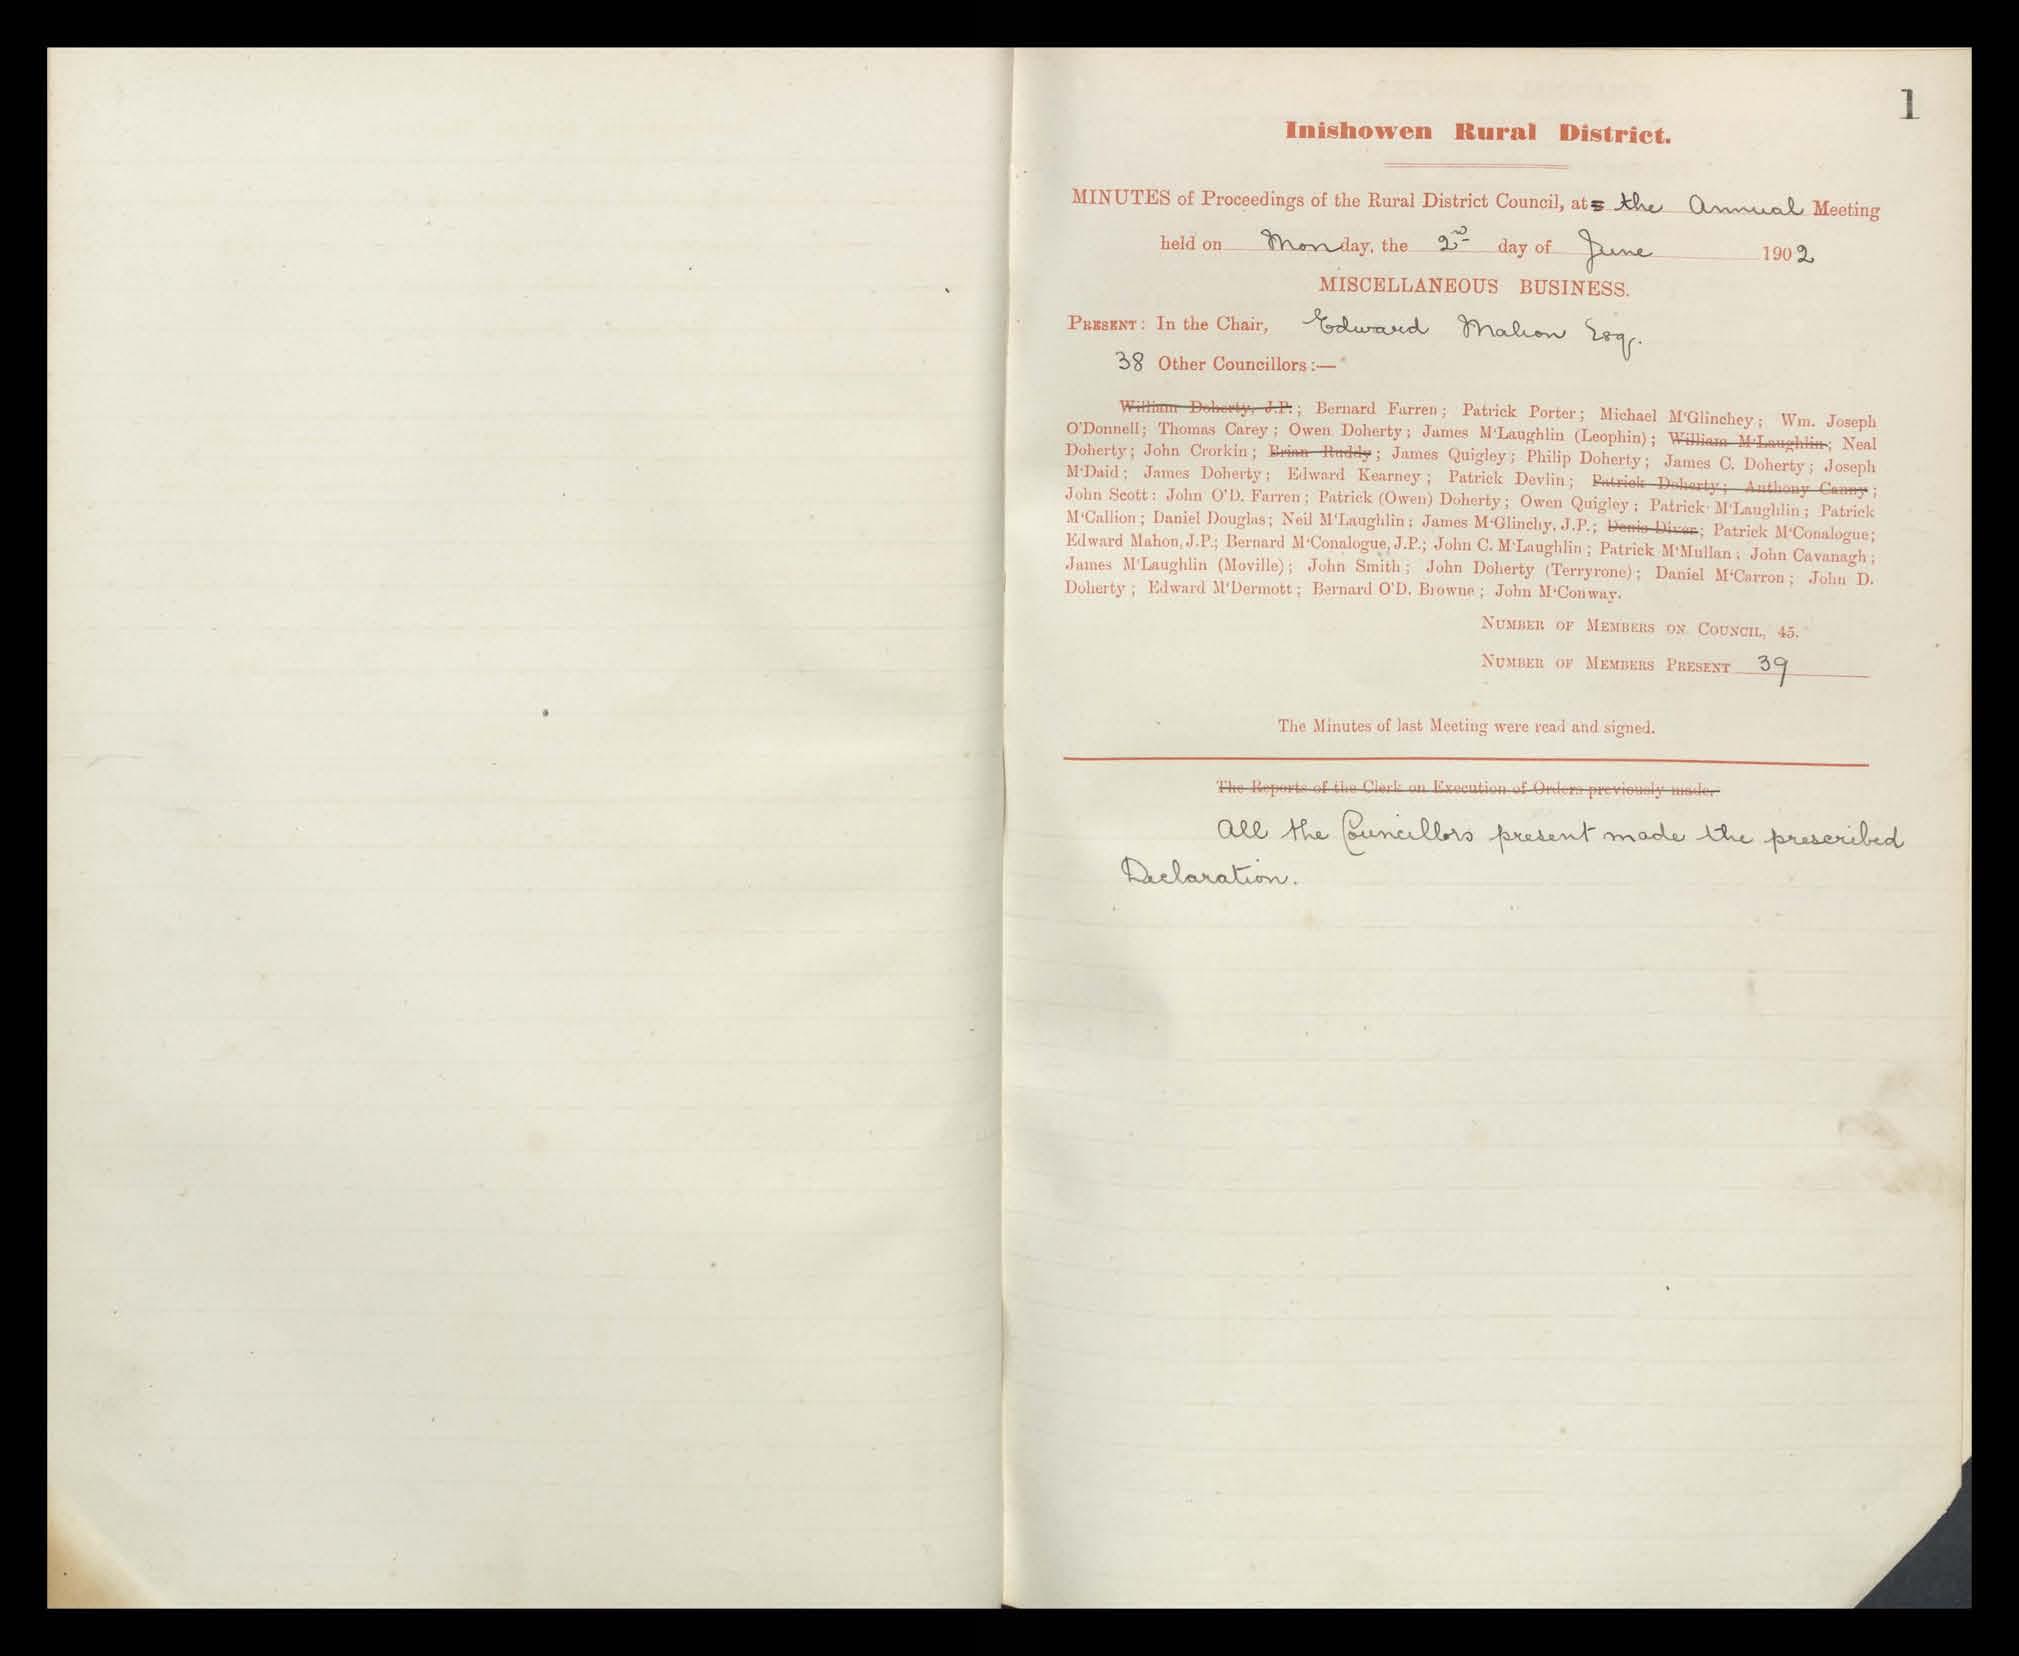 1
Inishowen Rural District.
MINUTES of Proceedings of the Rural District Council, at the Annual Meeting
held on Monday, the 2nd day of June 1902
MISCELLANEOUS BUSINESS.
PRESENT: In the Chair, Edward Mahon Esq.
38 Other Councillors:—
William Doherty, J.P.; Bernard Farren; Patrick Porter; Michael M'Glinchey; Wm. Joseph
O'Donnell; Thomas Carey; Owen Doherty; James M'Laughlin (Leophin); William M'Laughlin; Neal
Doherty; John Crorkin; Brian Ruddy; James Quigley; Philip Doherty; James C. Doherty; Joseph
M'Daid; James Doherty; Edward Kearney; Patrick Devlin; Patrick Doherty; Anthony Canny;
John Scott: John O'D. Farren; Patrick (Owen) Doherty; Owen Quigley; Patrick M'Laughlin; Patrick
M'Callion; Daniel Douglas; Neil M'Laughlin; James M'Glinchy, J.P.; Denis Diver; Patrick M'Conalogue;
Edward Mahon, J.P.; Bernard M'Conalogue, J.P.; John C. M'Laughlin; Patrick M'Mullan; John Cavanagh;
James M'Laughlin (Moville); John Smith; John Doherty (Terryrone); Daniel M'Carron; John D.
Doherty; Edward M'Dermott; Bernard O'D. Browne; John M'Conway.
NUMBER OF MEMBERS ON COUNCIL, 45.
NUMBER OF MEMBERS PRESENT 39
The Minutes of last Meeting were read and signed.
The Reports of the Clerk on Execution of Orders previously made.
All the Councillors present made the prescribed
Declaration.